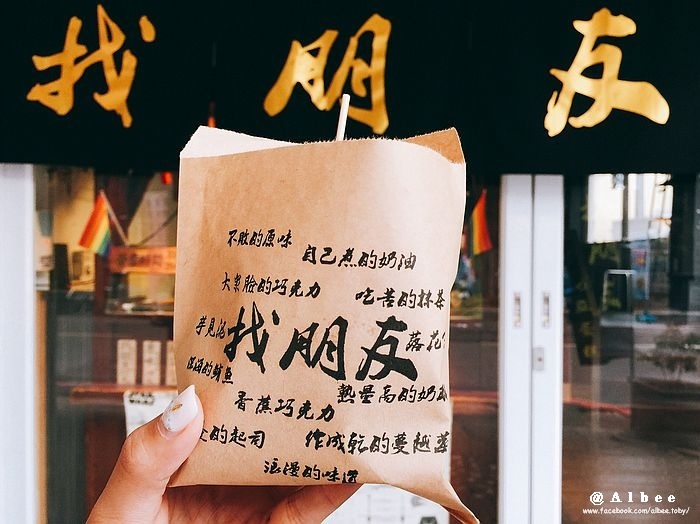 找朋友
不敗的原味
自己煮的奶油
大眾臉的巧克力
吃苦的抹茶
芋見泥
找朋友
落花
的鮪魚
熱量高的奶
香蕉巧克力
的起司
作成乾的蔓越莓
浪漫的味道
@Albee
www.facebook.com/albee.toby/